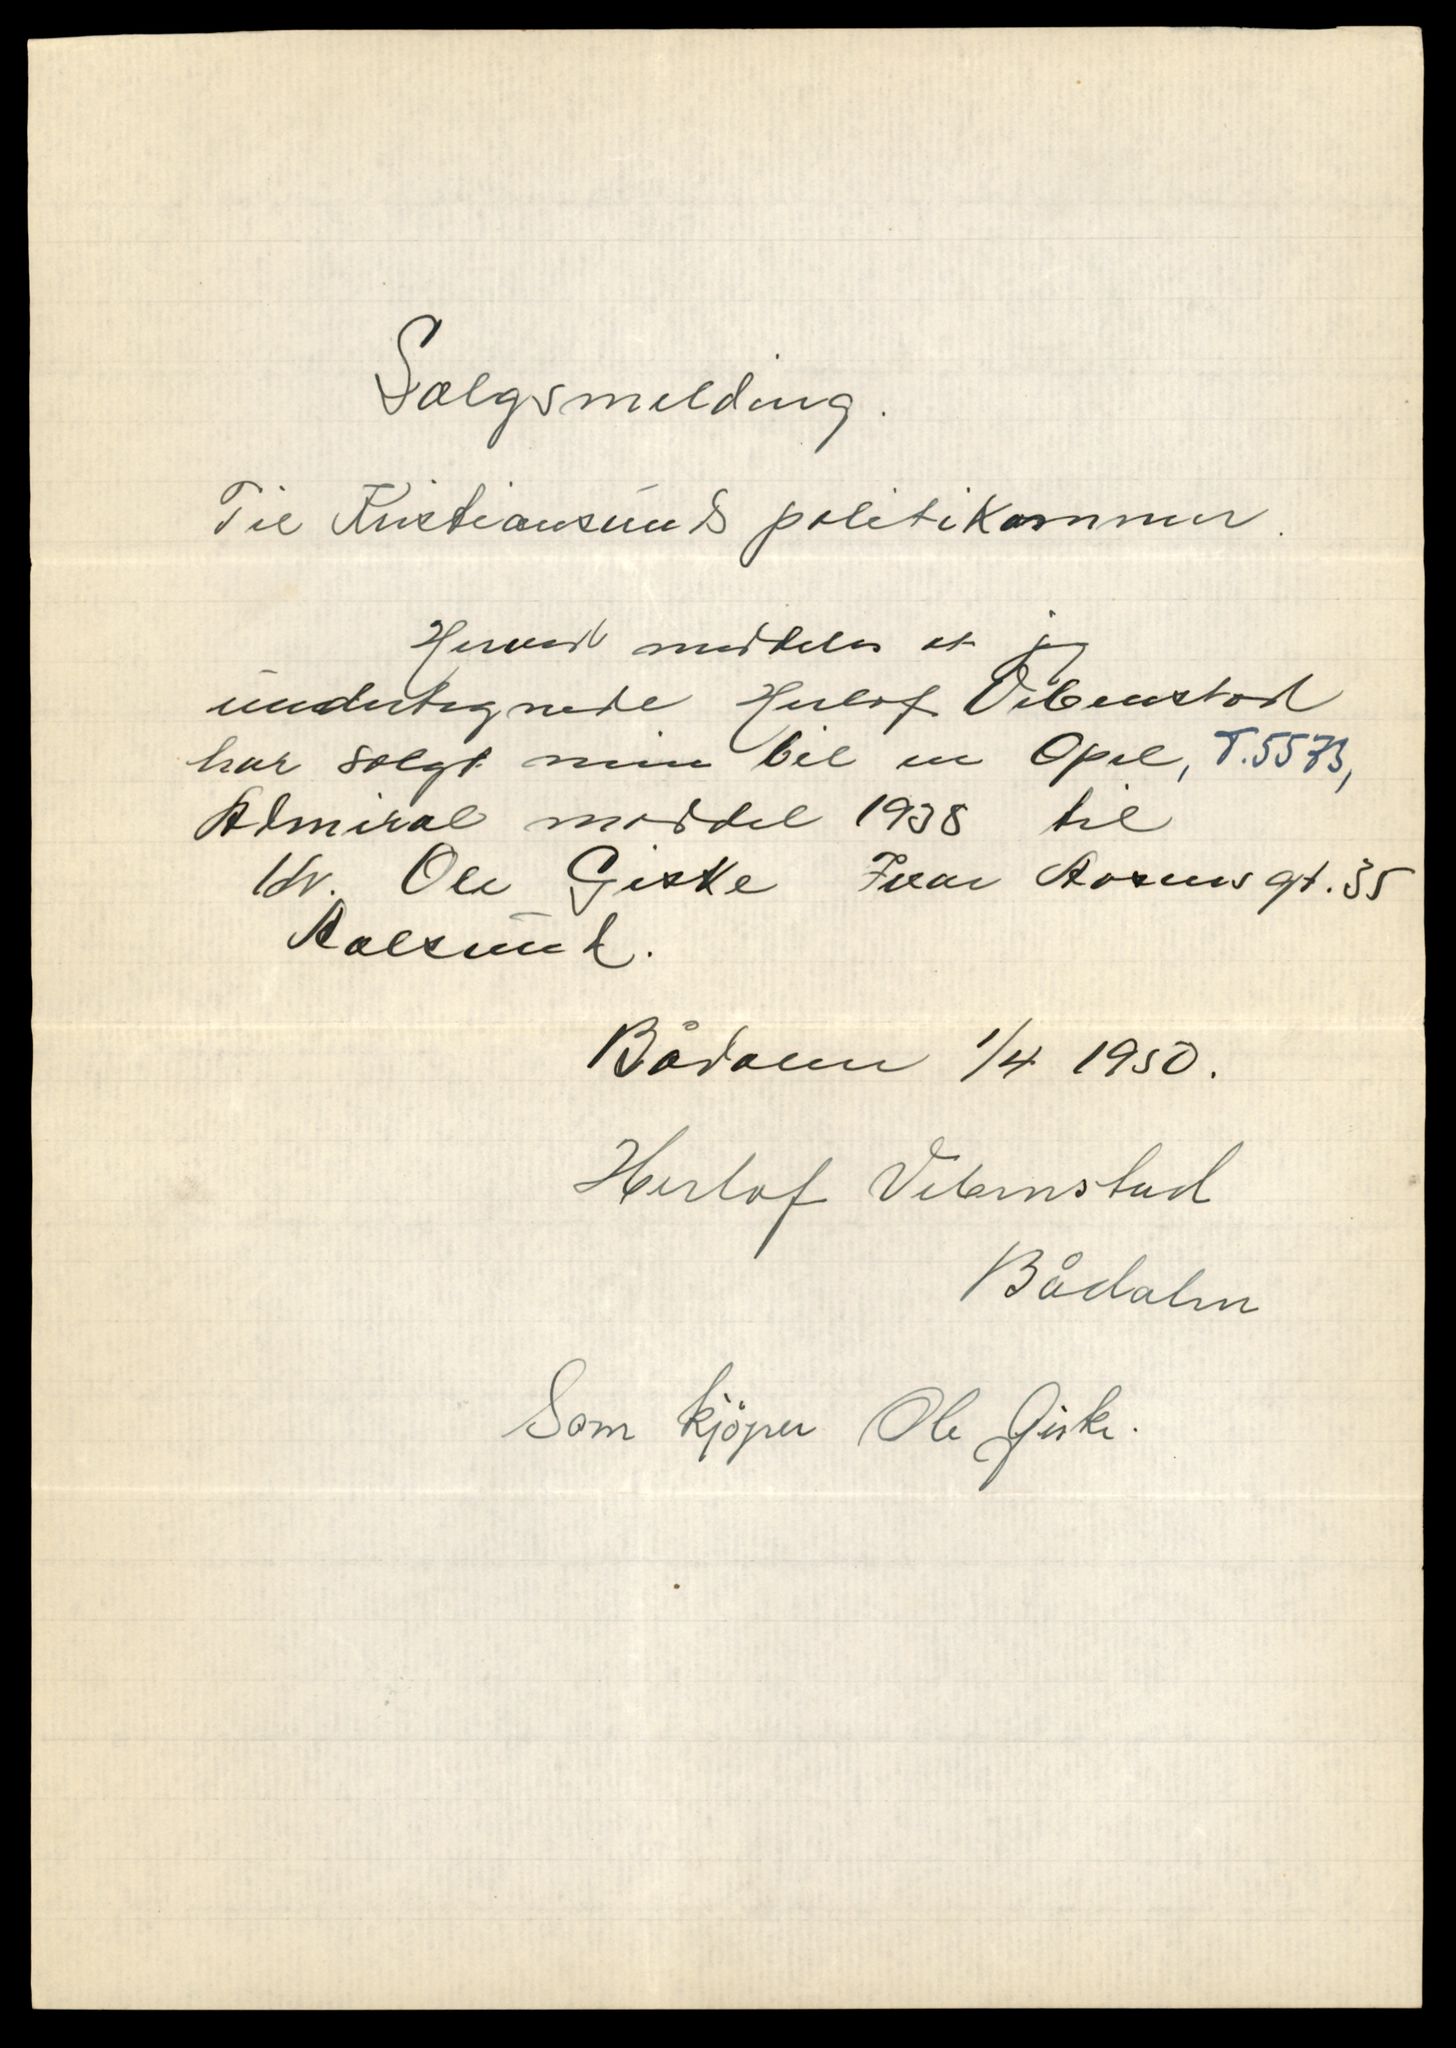 Salgsmelding.
Til Kristiansund politikammer.
Herved meddeles at jeg
undertegnede Herlof Vebenstad
har solgt min bil en Opel, T.5573,
Admiral moddel 1938 til
Hr. Ole Giske Ivar Aasens gt. 35
Aalesund.
Bådalen 1/4 1950.
Herlof Vebenstad
Bådalen
Som kjöper Ole Giske.